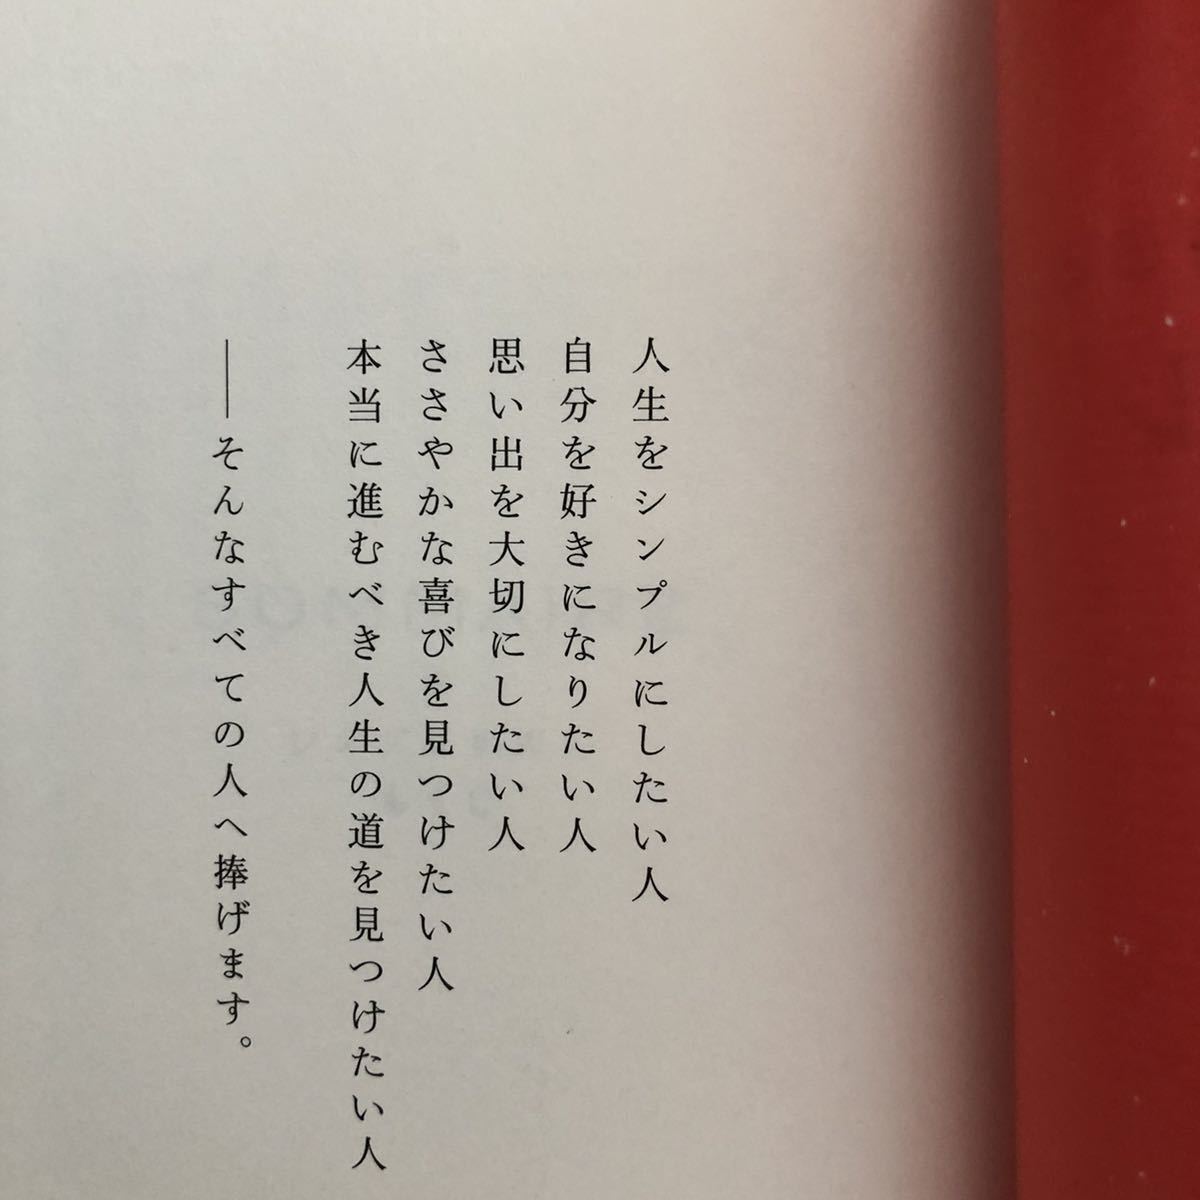 人生をシンプルにしたい人
自分を好きになりたい人
思い出を大切にしたい人
ささやかな喜びを見つけたい人
本当に進むべき人生の道を見つけたい人
──そんなすべての人へ捧げます。